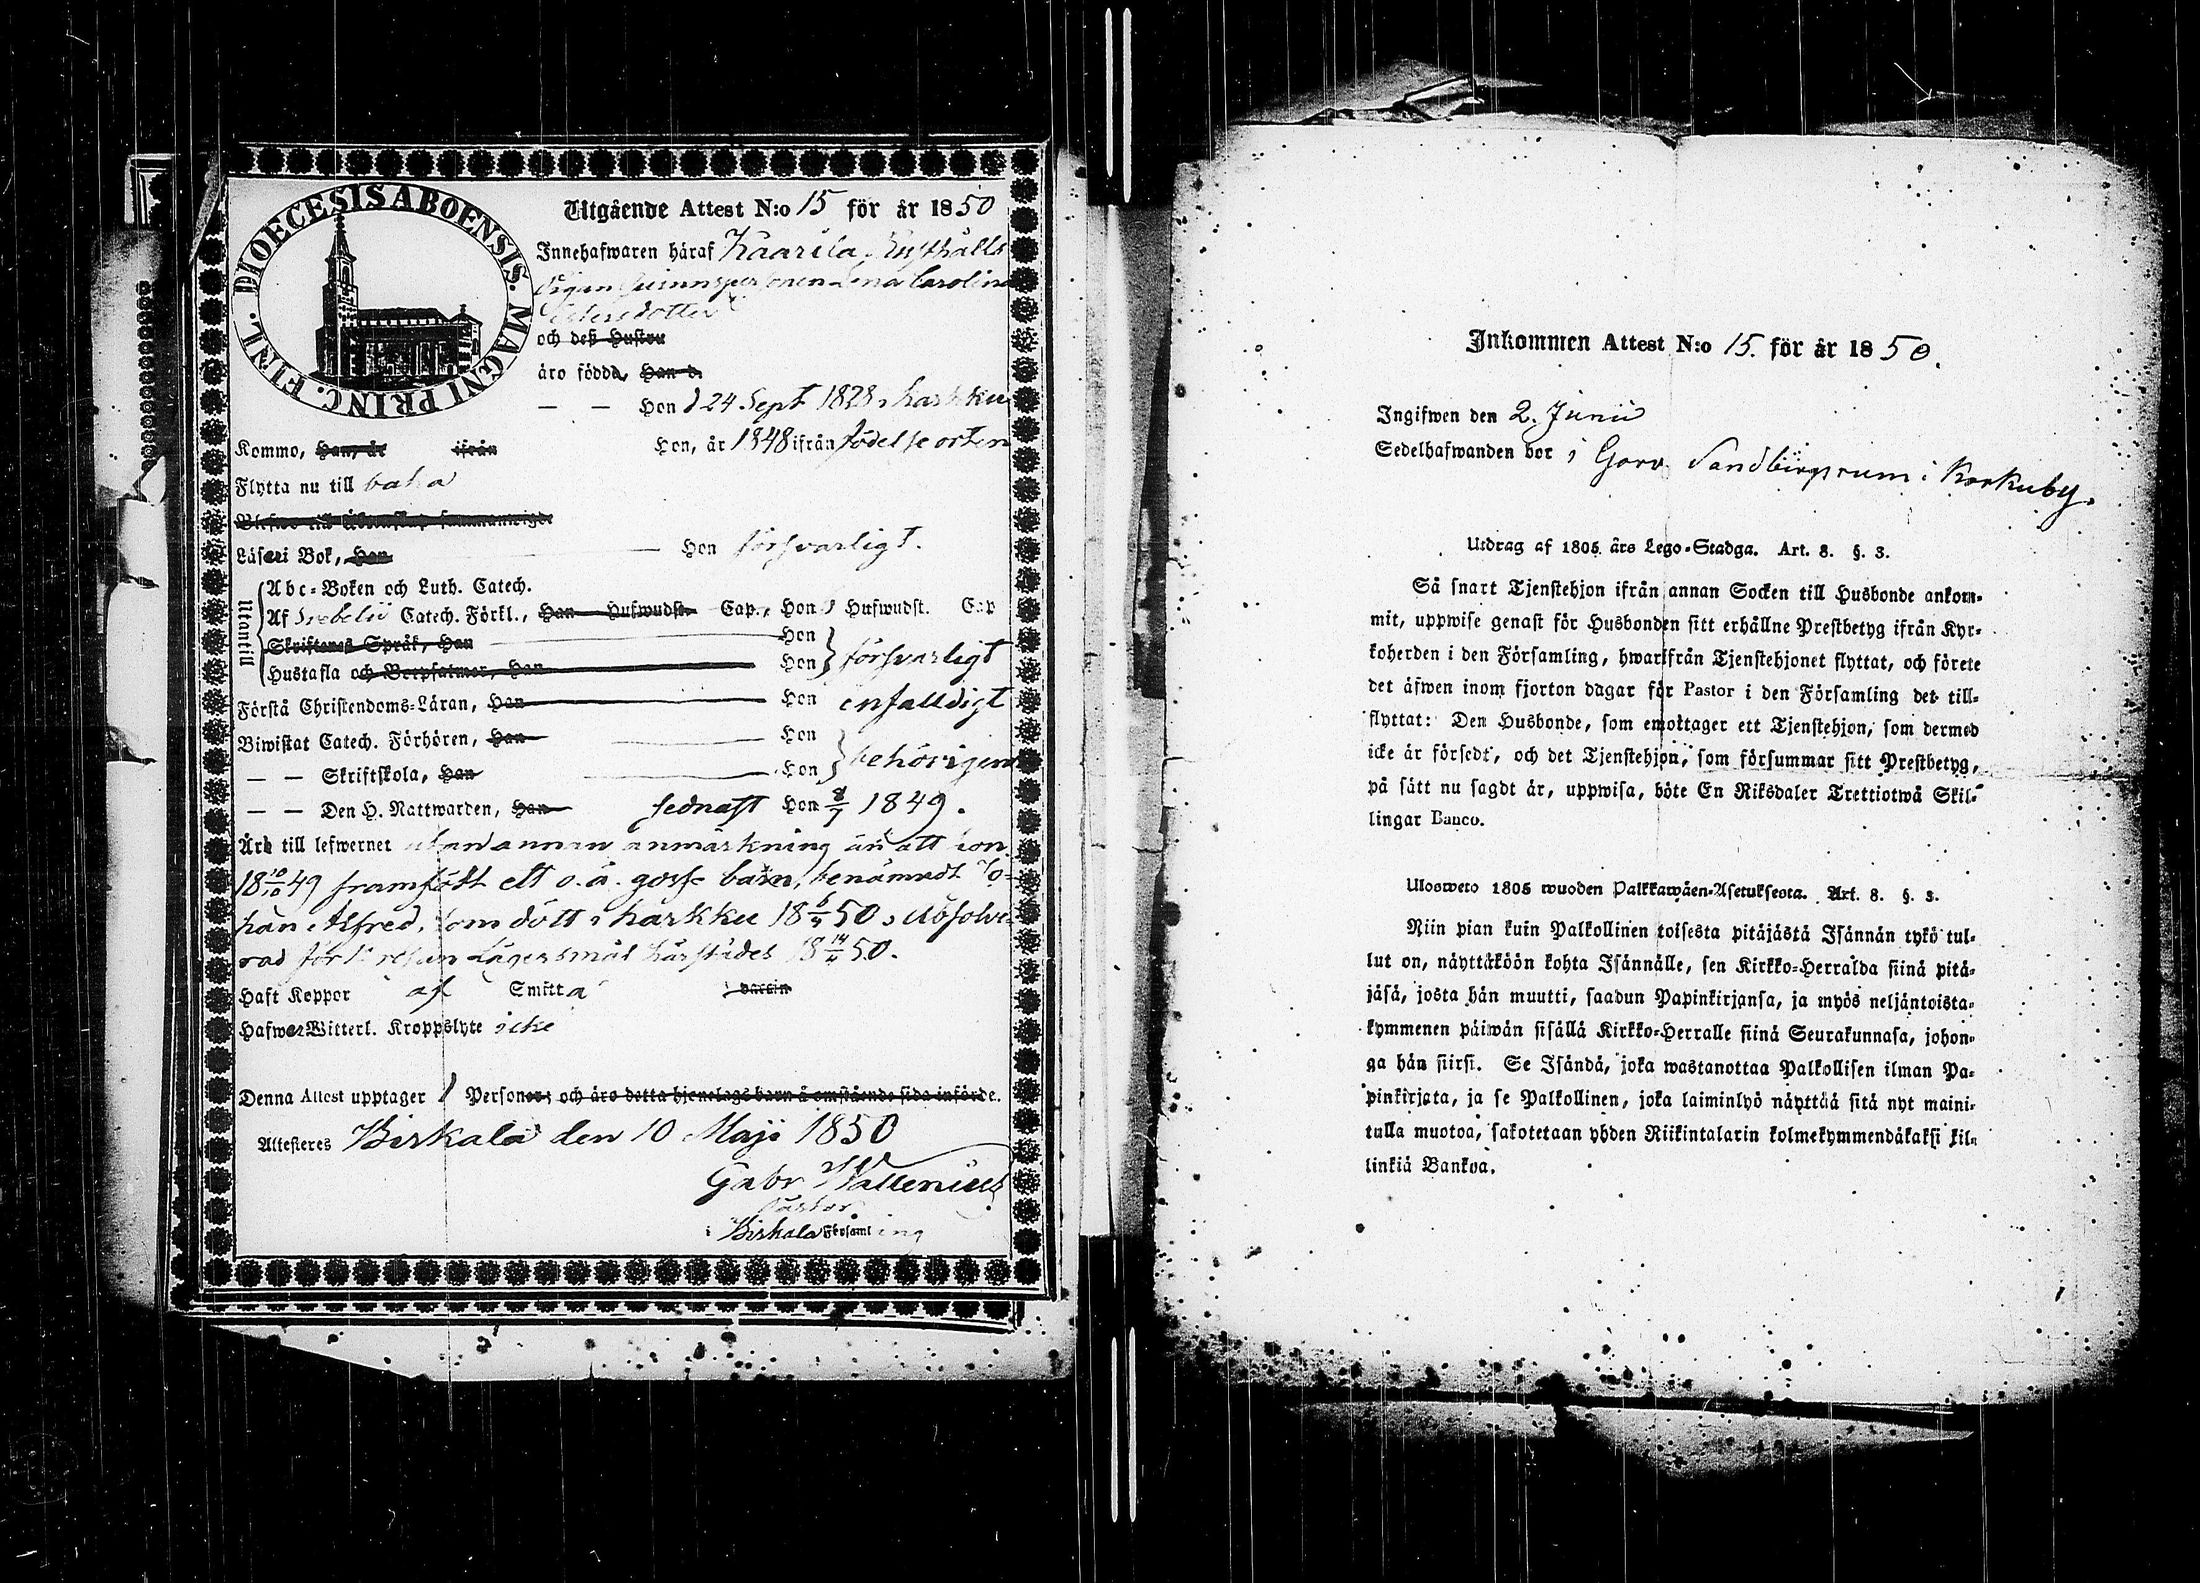 DIOECESIS ABOENSIS. MAGNI PRINC. FINL.
Utgående Attest N:o 15 för år 1850
Innehafwaren häraf Kaarila Rusthålls
Pigan qvinnspersonen Lena Carolina
Petersdotter
och deß Hustru
äro födde, Han d.
— — Hon d 24 Sept 1828 i Karkku
Kommo, Han, år ifrån Hon, år 1848 ifrån födelseorten
Flytta nu till baka
Läser i Bok, Han — Hon försvarligt.
Utantill
Abc-Boken och Luth. Catech.
Af Svebelii Catech. Förkl., Han Hufwudst. Cap., Hon, Hufwudst. Cap
Skriftenes Språk, Han Hon
Hustafla och Botpsalmer, Han Hon försvarligt
Förstå Christendoms-Läran, Han Hon enfaldigt
Biwistat Catech. Förhören, Han — Hon
— — Skriftskola, Han — Hon behörigen
— — Den H. Nattwarden, Han sednast Hon 8/7 1849.
Är till lefwernet utan annan anmärkning än att hon
18 10/10 49 framfödt ett o. ä. gosse barn, benämndt Jo-
han Alfred, som dött i Karkku 18 6/4 50, Absolve-
rad för 1. resan Lägersmål härstädes 18 14/4 50.
Haft Koppor af Smitta vaccin
Hafwer Witterl. Kroppslyte icke
Denna Attest upptager 1 Personer; och äro detta hjonelags barn å omstående sida införde.
Attesteres Birkala den 10 Maji 1850
Gabr Wallenius
Pastor
i Birkala Församling
Inkommen Attest N:o 15. för år 1850.
Ingifwen den 2. Junii
Sedelhafwanden bor i Garv. Sandbergs rum i Korkuby.
Utdrag af 1805 års Lego-Stadga. Art. 8. §. 3.
Så snart Tjenstehjon ifrån annan Socken till Husbonde ankom-
mit, uppwise genast för Husbonden sitt erhållne Prestbetyg ifrån Kyr-
koherden i den Församling, hwarifrån Tjenstehjonet flyttat, och förete
det äfwen inom fjorton dagar för Pastor i den Församling det till-
flyttat: Den Husbonde, som emottager ett Tjenstehjon, som dermed
icke är försedt, och det Tjenstehjon, som försummar sitt Prestbetyg,
på sätt nu sagdt är, uppwisa, böte En Riksdaler Trettiotwå Skil-
lingar Banco.
Ulosweto 1805 wuoden Palkkawäen-Asetuksesta. Art. 8. §. 3.
Niin pian kuin Palkollinen toisesta pitäjästä Isännän tykö tul-
lut on, näyttäköön kohta Isännälle, sen Kirkko-Herralda siinä pitä-
jäsä, josta hän muutti, saadun Papinkirjansa, ja myös neljäntoista-
kymmenen päiwän sisällä Kirkko-Herralle siinä Seurakunnasa, johon-
ga hän siirsi. Se Isändä, joka wastanottaa Palkollisen ilman Pa-
pinkirjata, ja se Palkollinen, joka laiminlyö näyttää sitä nyt maini-
tulla muotoa, sakotetaan yhden Riikintalarin kolmekymmendäkaksi kil-
linkiä Bankoa.